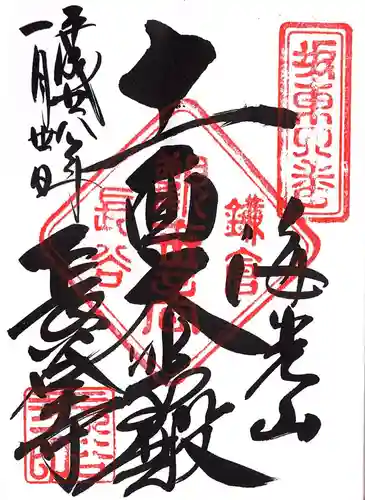 坂東四番
海光山
鎌倉
十一面大悲殿
長谷
長谷寺
平成廿八年
一月卅日